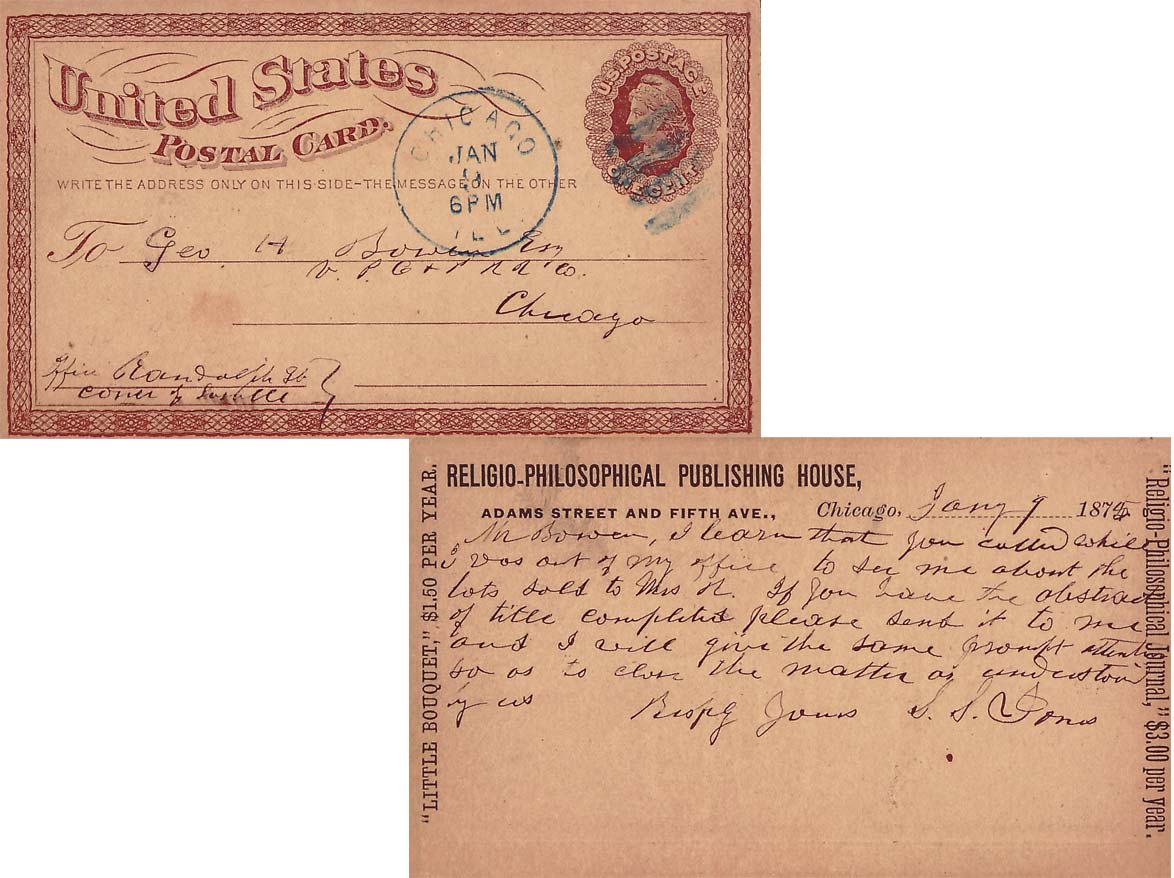 United States
POSTAL CARD.
U.S. POSTAGE
ONE CENT
CHICAGO
JAN
9
6PM
ILL
WRITE THE ADDRESS ONLY ON THIS SIDE–THE MESSAGE ON THE OTHER
To Geo. H Bowen Esq
V. P. Co.
Chicago
Office Randolph St
Corner of Lasalle
RELIGIO-PHILOSOPHICAL PUBLISHING HOUSE,
ADAMS STREET AND FIFTH AVE., Chicago, Jany 9 187
Mr Bowen, I learn that you called while
I was out of my office to see me about the
lots sold to Mrs H. If you have the abstract
of title completed please send it to me
and I will give the same prompt attenti
so as to close the matter as understood
by us Respy Yours S. S. Jones
"LITTLE BOUQUET," $1.50 PER YEAR.
"Religio-Philosophical Journal," $3.00 per year.